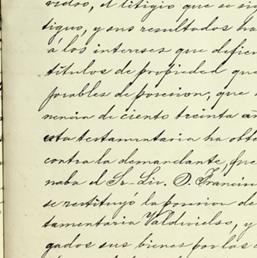 vedoso, el litigio que se si
tiguo, y sus resultados ha
á los intereses que defien
títulos de propiedad que
forables de posesion, que
nencia de ciento treinta añ
esta testamentaria ha obte
contra la demandante, que
naba el Sr. Lic. D. Francis
se restituyó la posesion de
tamentaría Valdivielso, y
gados sus bienes por los